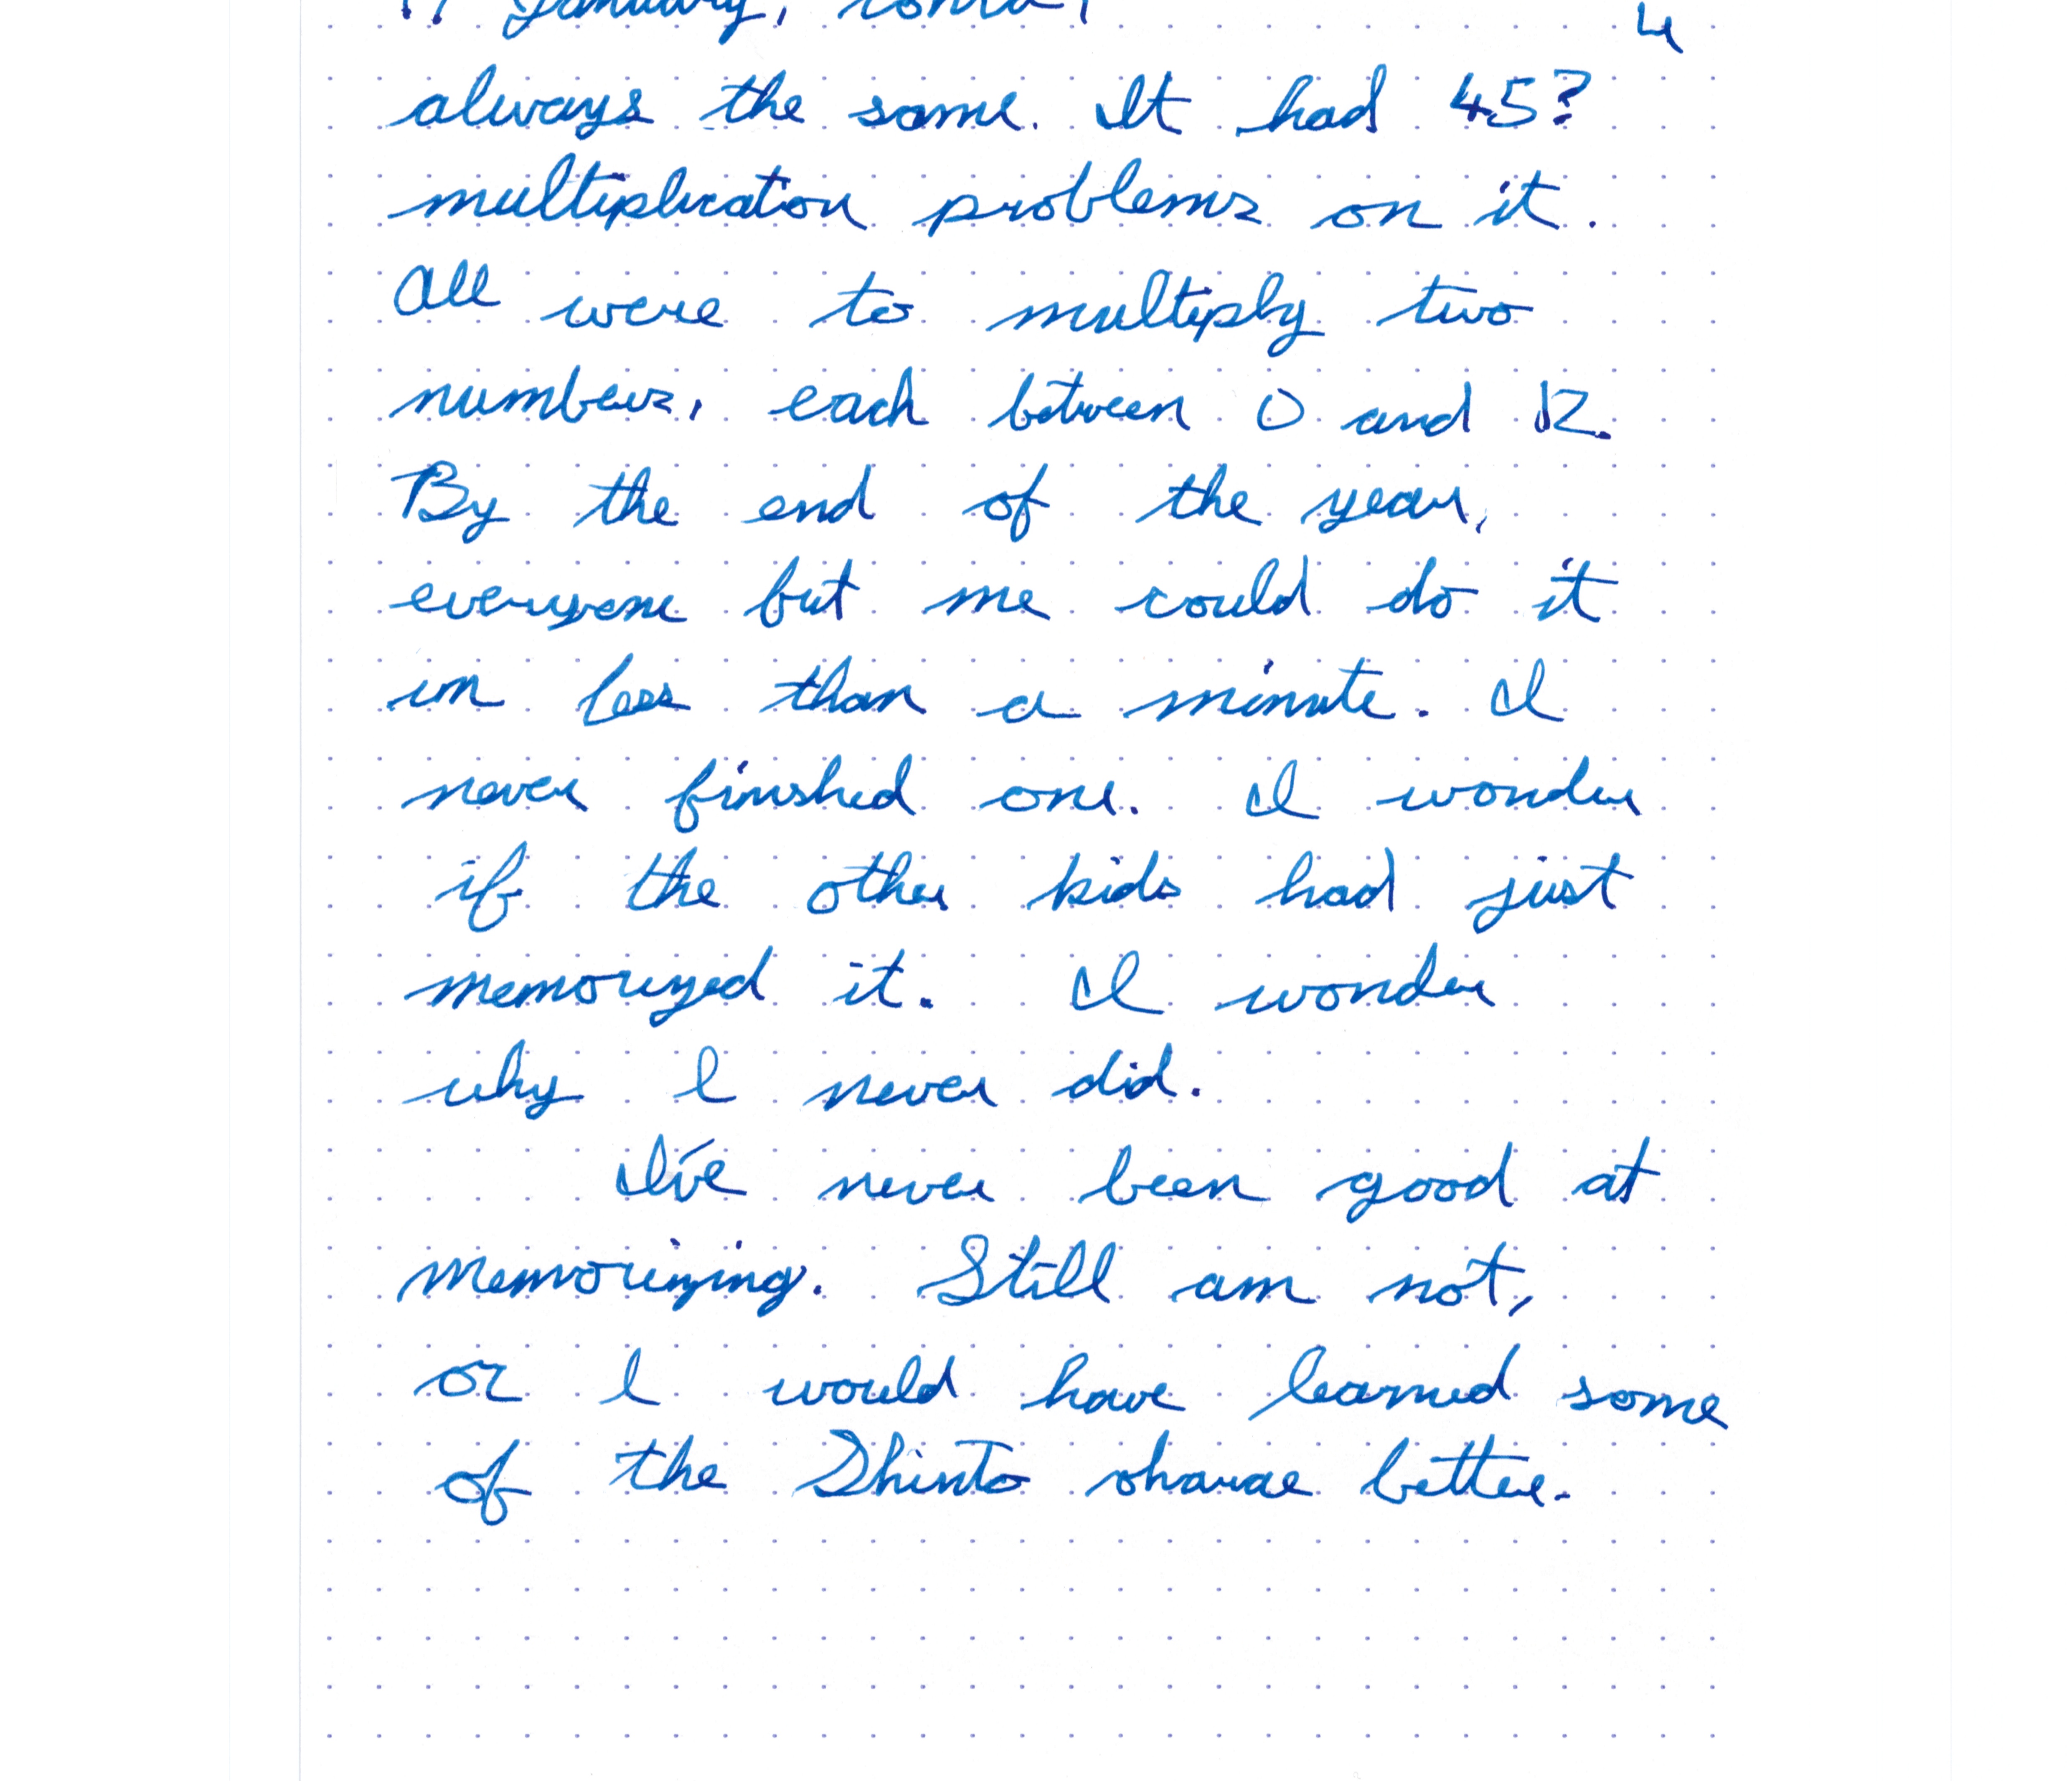 January, contd.
always the same. It had 45?
multiplication problems on it.
All were to multiply two
numbers, each between 0 and 12.
By the end of the year,
everyone but me could do it
in less than a minute. I
never finished one. I wonder
if the other kids had just
memorized it. I wonder
why I never did.
I've never been good at
memorizing. Still am not,
or I would have learned some
of the Shinto better.